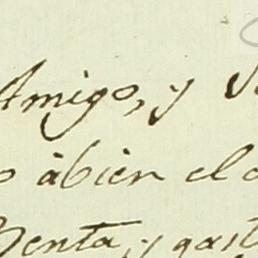 Amigo, y S
o àbien el
Venta, y gast